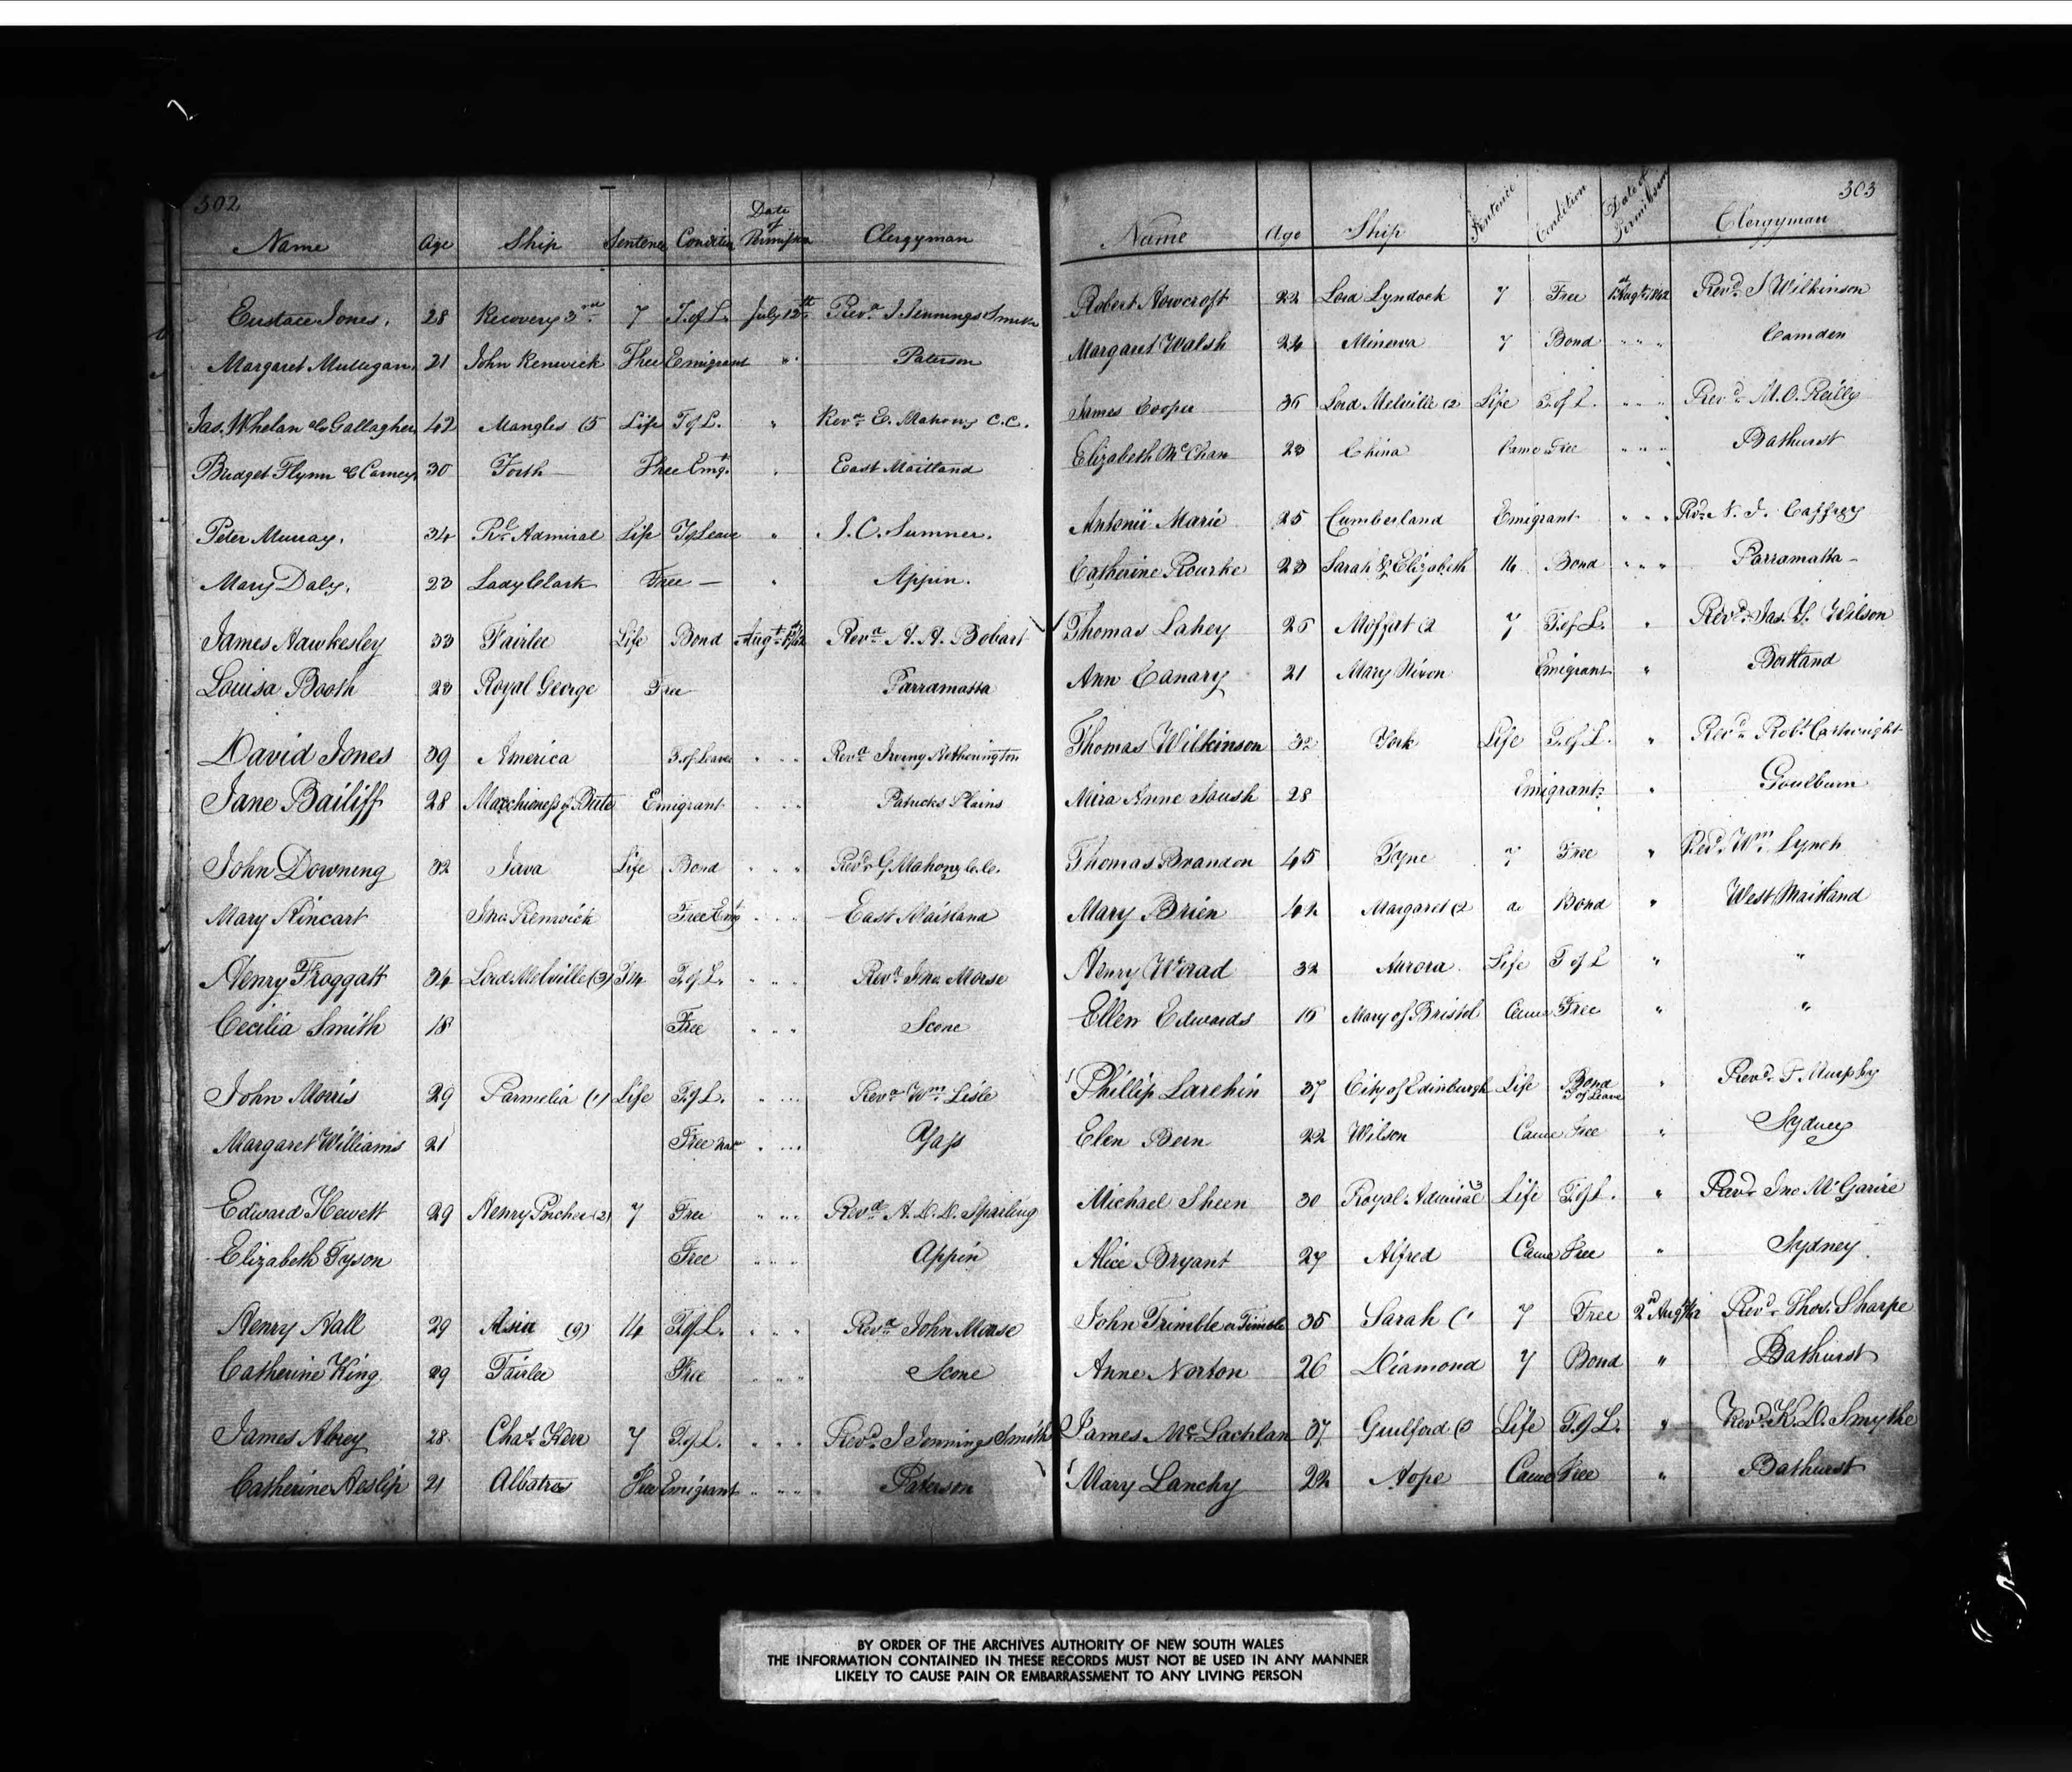 302
Name Age Ship Sentence Condition Date of Permission Clergyman
Eustace Jones. 28 Recovery 3rd 7 T.of L. July 13th Revd J Jennings Smith
Margaret Mulligan 21 John Renwick Free Emigrant " Paterson
Jas. Whelan als Gallagher 42 Mangles (5 Life T of L. " Revd E. Mahony C.C.
Bridget Flynn als Carney 30 Forth Free Emigt. " East Maitland
Peter Murray. 34 Rl Admiral Life T of Leave " J. C. Sumner.
Mary Daly. 23 Lady Clark Free — " Appin.
James Hawkesley 33 Fairlee Life Bond Augt 1st/42 Revd H. H. Bobart
Louisa Booth 23 Royal George Free Parramatta
David Jones 39 America T. of Leave " " " Revd Irving Hetherington
Jane Bailiff 28 Marchioness of Bute Emigrant " " " Patricks Plains
John Downing 32 Java Life Bond " " " Revd G Mahony C.C.
Mary Kincart Jno. Renwick Free Emigt " " " East Maitland
Henry Froggatt 34 Lord Melville (3) 14 T. of L. " " " Revd Jno. Morse
Cecilia Smith 18 Free " " " Scone
John Morris 29 Parmelia (1) Life T. of L. " " " Revd Wm Lisle
Margaret Williams 21 Free " " " Yass
Edward Hewett 29 Henry Porcher (2) 7 Free " " " Revd H. D. D. Sparling
Elizabeth Tyson Free " " " Appin
Henry Hall 29 Asia (9) 14 T. of L. " " " Revd John Morse
Catherine King 29 Fairlee Free " " " Scone
James Abrey 28 Chas. Kerr 7 T. of L. " " " Revd J Jennings Smith
Catherine Heslip 21 Albatross Free Emigrant " " " Paterson
303
Name Age Ship Sentence Condition Date of Permission Clergyman
Robert Howcroft 22 Lord Lyndoch 7 Free 1st Augt 1842 Revd. J Wilkinson
Margaret Walsh 24 Minerva 7 Bond " " " Camden
James Cooper 36 Lord Melville (2 Life T. of L. " " " Revd M. O. Reilly
Elizabeth McChan 23 China Came Free " " " Bathurst
Marie 25 Cumberland Emigrant " " " Revd N. J. Caffrey
Catherine Rourke 23 Sarah & Elizabeth 14 Bond " " " Parramatta
Thomas Lahey 26 Moffatt (2 7 T. of L. " Revd. Jas. Y. Wilson
Ann Canary 21 Mary Nixon Emigrant " Portland
Thomas Wilkinson 32 York Life T. of L. " Revd Robt Cartwright
Anne 28 Emigrant " Goulburn
Thomas Brandon 45 Tyne 7 Free " Revd. Wm Lynch
Mary Brien 42 Margaret (2 do Bond " West Maitland
Henry 32 Aurora Life T of L " "
Ellen Edwards 16 Mary of Bristol Came Free " "
Phillip Larehin 37 City of Edinburgh Life Bond T of Leave " Revd. F. Murphy
Elen Bern 22 Wilson Came Free " Sydney
Michael Sheen 30 Royal Admiral (3 Life T. of L. " Revd. Jno McGarvie
Alice Bryant 27 Alfred Came Free " Sydney.
John Trimble or Timble 35 Sarah (1 7 Free 2nd Augt/42 Revd. Thos. Sharpe
Anne Norton 26 Diamond 7 Bond " Bathurst
James McLachlan 37 Guilford (5 Life T. of L. " Revd K. D. Smythe
Mary Lanchy 22 Hope Came Free " Bathurst
BY ORDER OF THE ARCHIVES AUTHORITY OF NEW SOUTH WALES
THE INFORMATION CONTAINED IN THESE RECORDS MUST NOT BE USED IN ANY MANNER
LIKELY TO CAUSE PAIN OR EMBARRASSMENT TO ANY LIVING PERSON